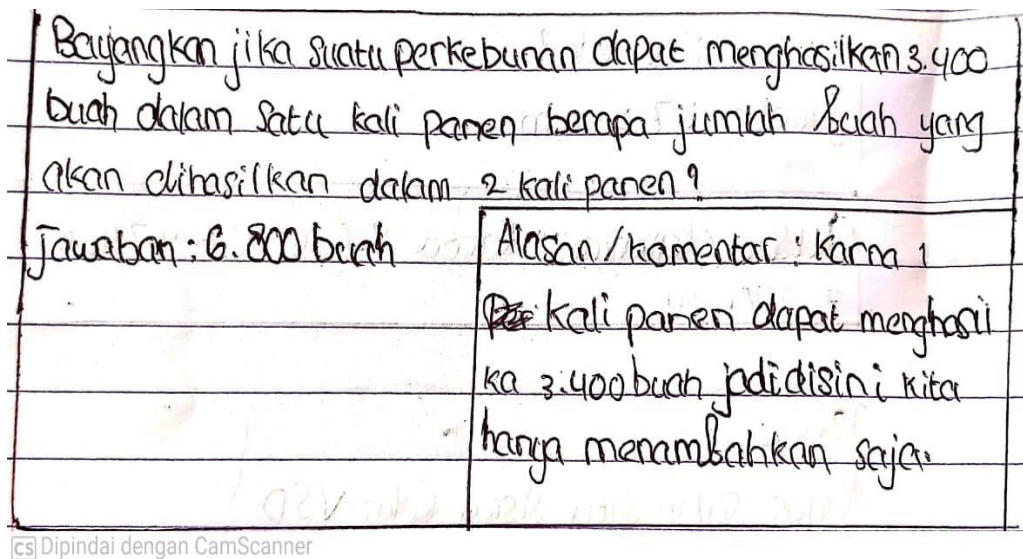 Bayangkan jika suatu perkebunan dapat menghasilkan 3.400
buah dalam satu kali panen berapa jumlah buah yang
akan dihasilkan dalam 2 kali panen?
jawaban : 6.800 buah
Alasan/komentar : Karna 1
kali panen dapat menghasil
ka 3.400 buah jadi disini kita
hanya menambahkan saja.
CS Dipindai dengan CamScanner